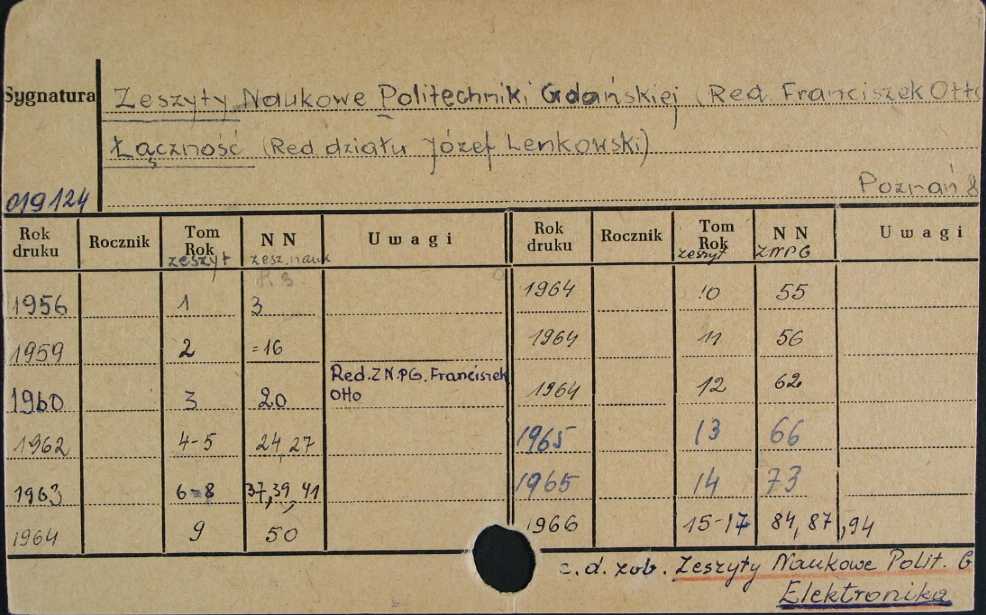 Sygnatura
Zeszyty Naukowe Politechniki Gdańskiej (Red. Franciszek Otto
Łączność (Red działu Józef Lenkowski)
019124
Poznań 8
Rok druku Rocznik Tom Rok zeszyt N N zesz. nauk Uwagi Rok druku Rocznik Tom Rok zeszyt N N ZNPG Uwagi
1956 1 3 1964 10 55
1959 2 =16 1964 11 56
1960 3 20 Red. Z.N.PG. Franciszek Otto 1964 12 62
1962 4-5 24, 27 1965 13 66
1963 6=8 37, 39, 41 1965 14 73
1964 9 50 1966 15-17 84, 87, 94
c. d. zob. Zeszyty Naukowe Polit. G
Elektronika